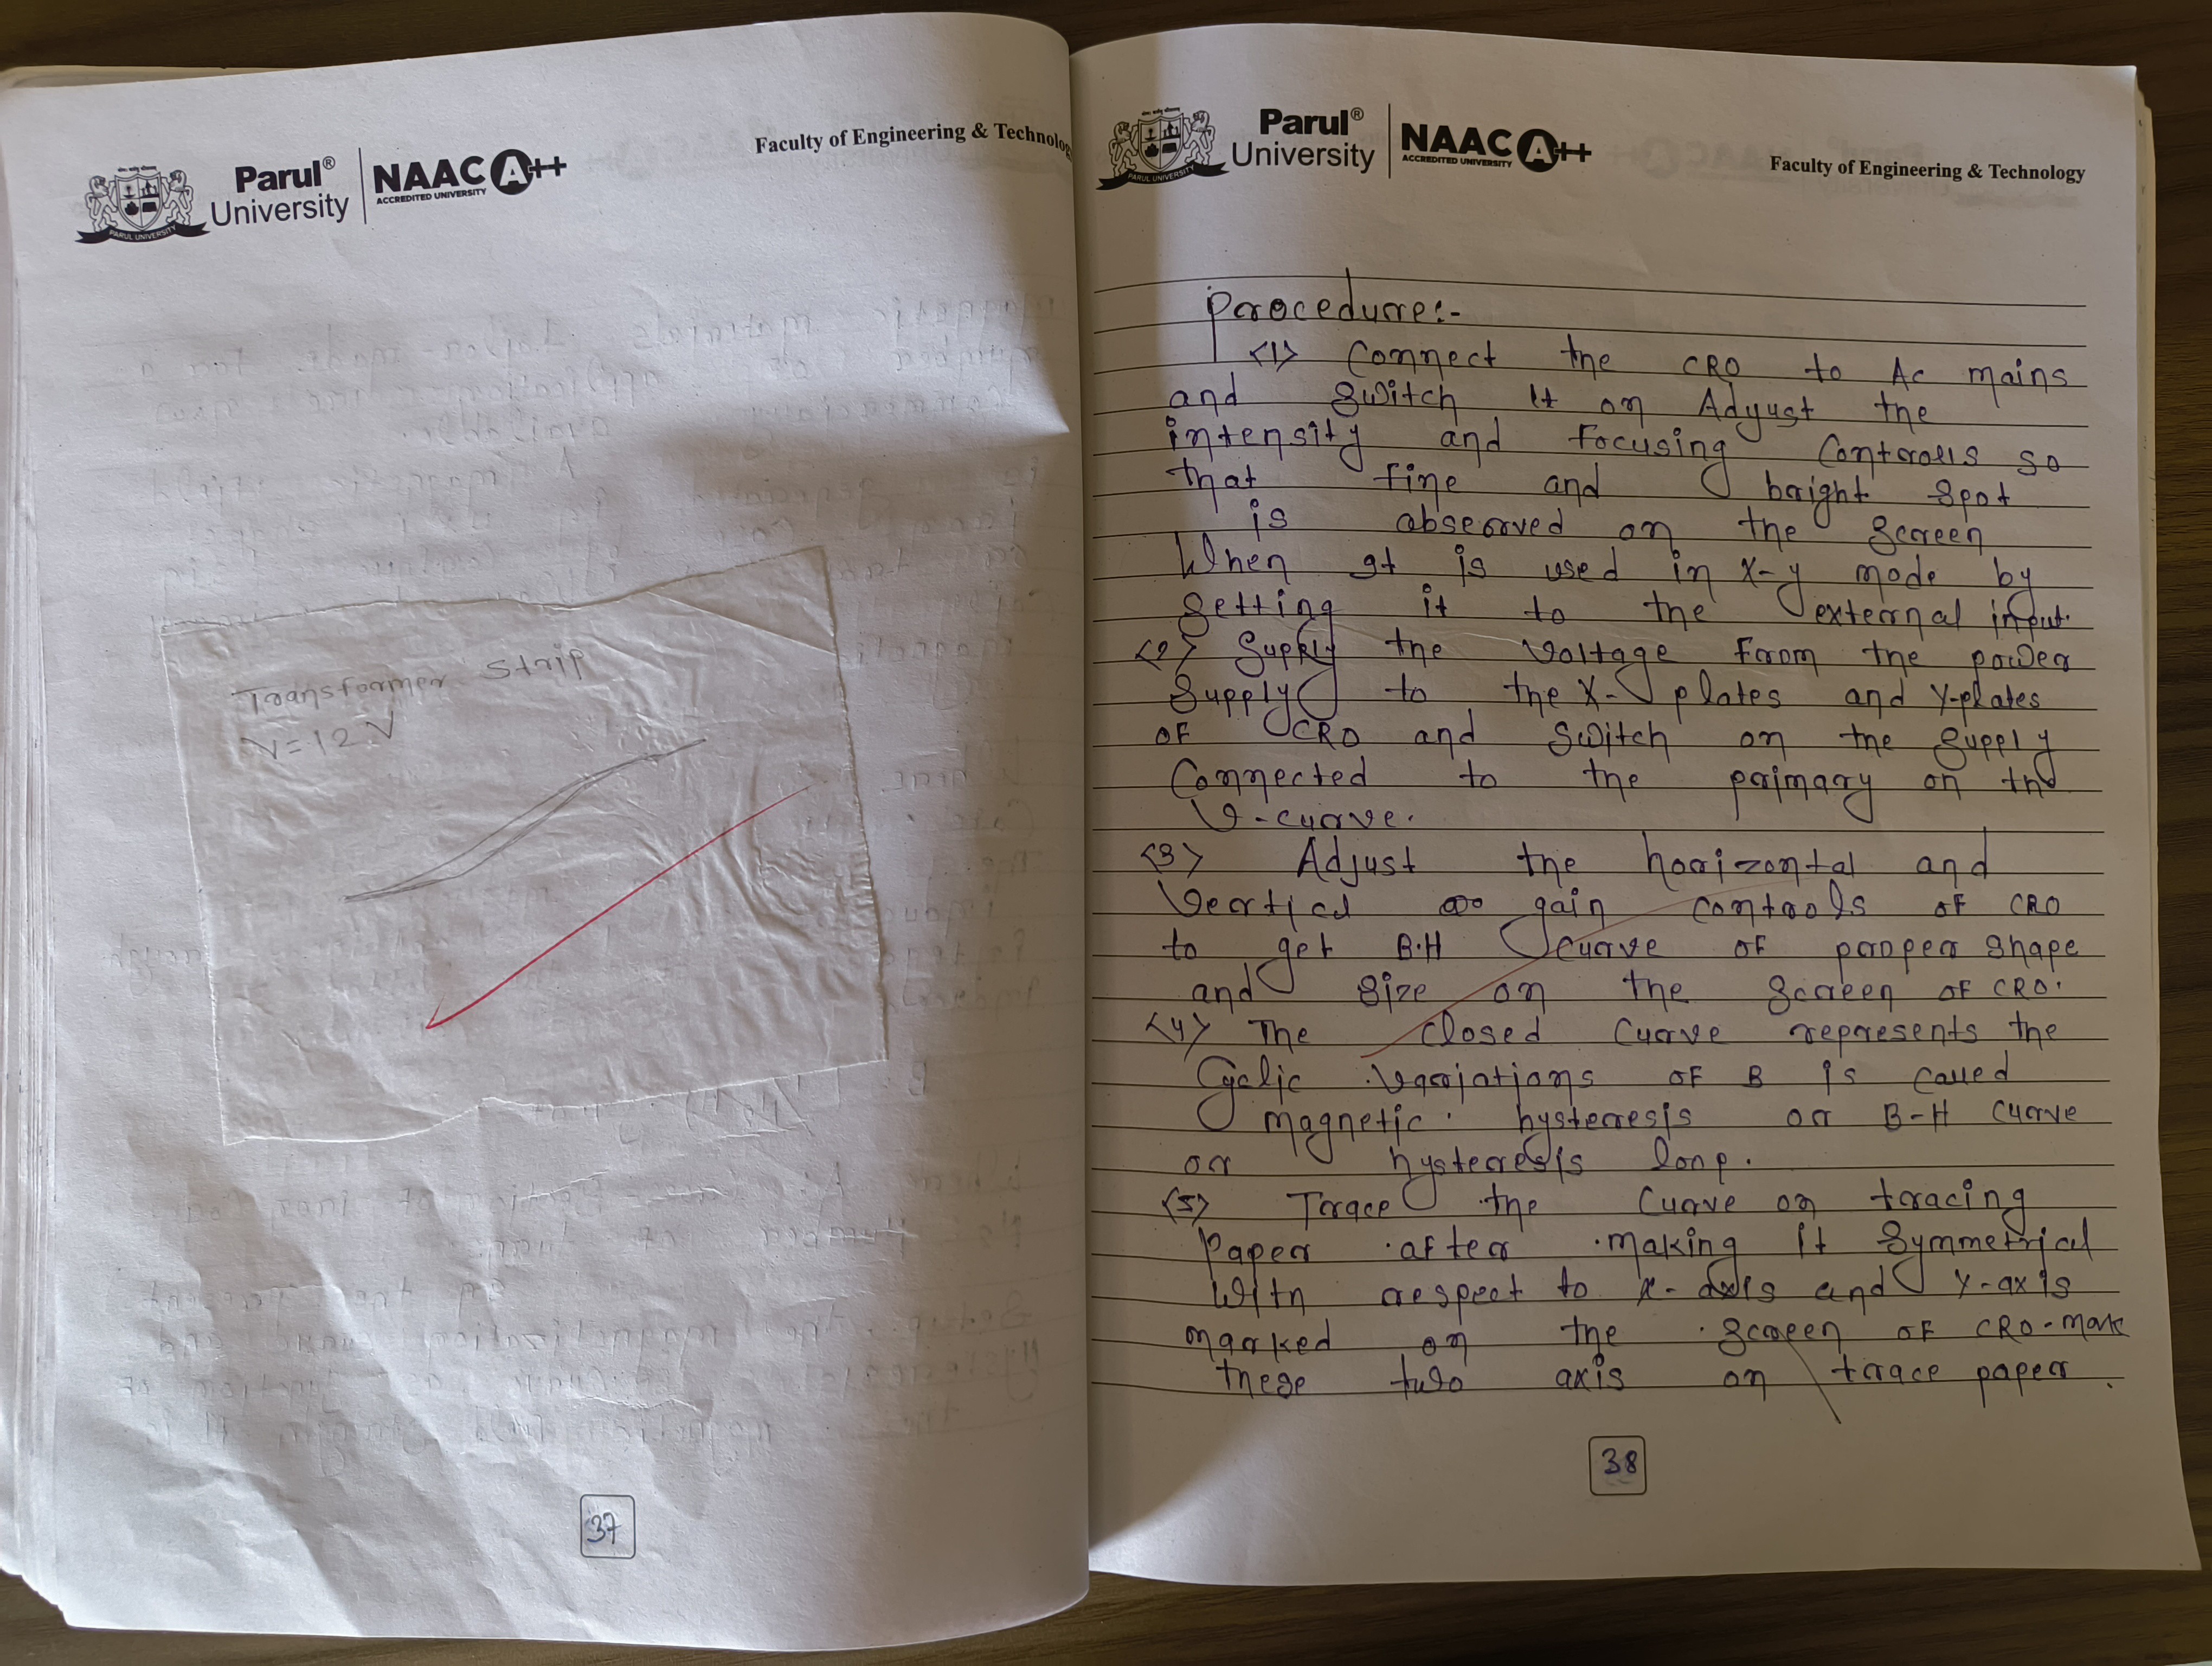 Parul®
University
NAAC A++
ACCREDITED UNIVERSITY
PARUL UNIVERSITY
Faculty of Engineering & Technolog
Transformer Strip
V=12 V
37
Parul®
University
NAAC A++
ACCREDITED UNIVERSITY
PARUL UNIVERSITY
Faculty of Engineering & Technology
procedure:-
<1> Connect the CRO to Ac mains
and switch It on Adjust the
intensity and Focusing Controlls so
that fine and bright spot
is observed on the screen
When It is used in X-y mode by
setting it to the external input.
<2> Supply the Voltage From the power
Supply to the X- plates and Y-plates
OF CRO and switch on the supply
Connected to the primary on the
V-curve.
<3> Adjust the horizontal and
Vertical gain controls OF CRO
to get B.H curve OF proper shape
and size on the screen OF CRO.
<4> The closed curve represents the
Cyclic Variations OF B is called
magnetic hysteresis or B-H curve
or hysteresis loop.
<5> Trace the curve on tracing
Paper after making it symmetrical
With respect to x-axis and Y-axis
marked on the screen OF CRO-mark
these two axis on trace paper.
38